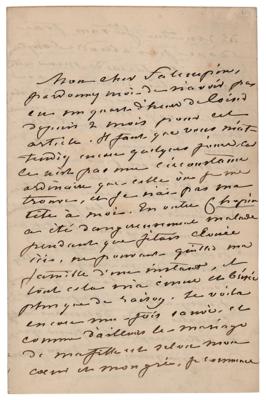 Mon cher Falempin,
pardonnez moi de n'avoir pas
eu un quart d'heure de loisir
depuis 2 mois pour cet
article. Il faut que vous m'at-
tendiez encore quelques jours, car
ce n'est pas une circonstance
ordinaire que celle où je me
trouve, et je n'ai pas ma
tête à moi. En outre Chopin
a été dangereusement malade
pendant que j'étais clouée
ici, ne pouvant quitter ma
famille d'une instant, et
tout cela m'a émue et
plus que de raison. Le voilà
encore une fois sauvé, et
comme d'ailleurs le mariage
de ma fille est selon mon
cœur et mon gré, je commence